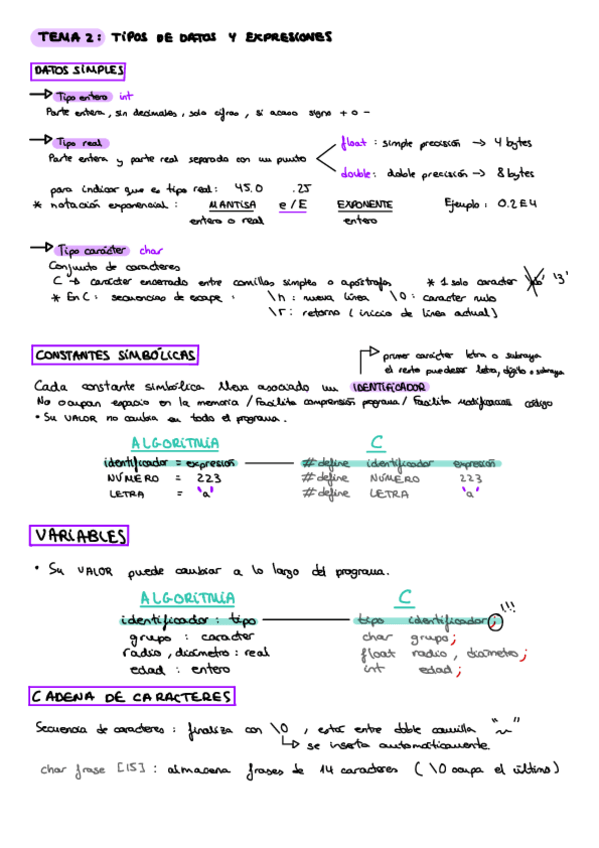 TEMA 2: TIPOS DE DATOS Y EXPRESIONES
DATOS SIMPLES
Tipo entero int
Parte entera, sin decimales, solo cifras, si acaso signo + o -
Tipo real
Parte entera y parte real separada con un punto
float: simple precisión → 4 bytes
double: doble precisión → 8 bytes
para indicar que es tipo real: 45.0 .25
* notación exponencial: MANTISA e/E EXPONENTE Ejemplo: 0.2E4
entero o real entero
Tipo carácter char
Conjunto de caracteres
C → carácter encerrado entre comillas simples o apóstrofos * 1 solo caracter '3'
* En C: secuencias de escape: \n: nueva línea \0: caracter nulo
\r: retorno (inicio de línea actual)
CONSTANTES SIMBÓLICAS
primer carácter letra o subraya
el resto puede ser letra, dígito o subraya
Cada constante simbólica lleva asociado un IDENTIFICADOR
No ocupan espacio en la memoria / Facilita comprensión programa / Facilita modificaciones código
• Su VALOR no cambia en todo el programa.
ALGORITMIA C
identificador = expresión #define identificador expresión
NÚMERO = 223 #define NÚMERO 223
LETRA = 'a' #define LETRA 'a'
VARIABLES
• Su VALOR puede cambiar a lo largo del programa.
ALGORITMIA C
identificador : tipo tipo identificador; !!!
grupo : caracter char grupo;
radio, diámetro : real float radio, diámetro;
edad : entero int edad;
CADENA DE CARACTERES
Secuencia de caracteres: finaliza con \0, estar entre doble comilla " ~ "
se inserta automáticamente.
char frase [15]: almacena frases de 14 caracteres (\0 ocupa el último)